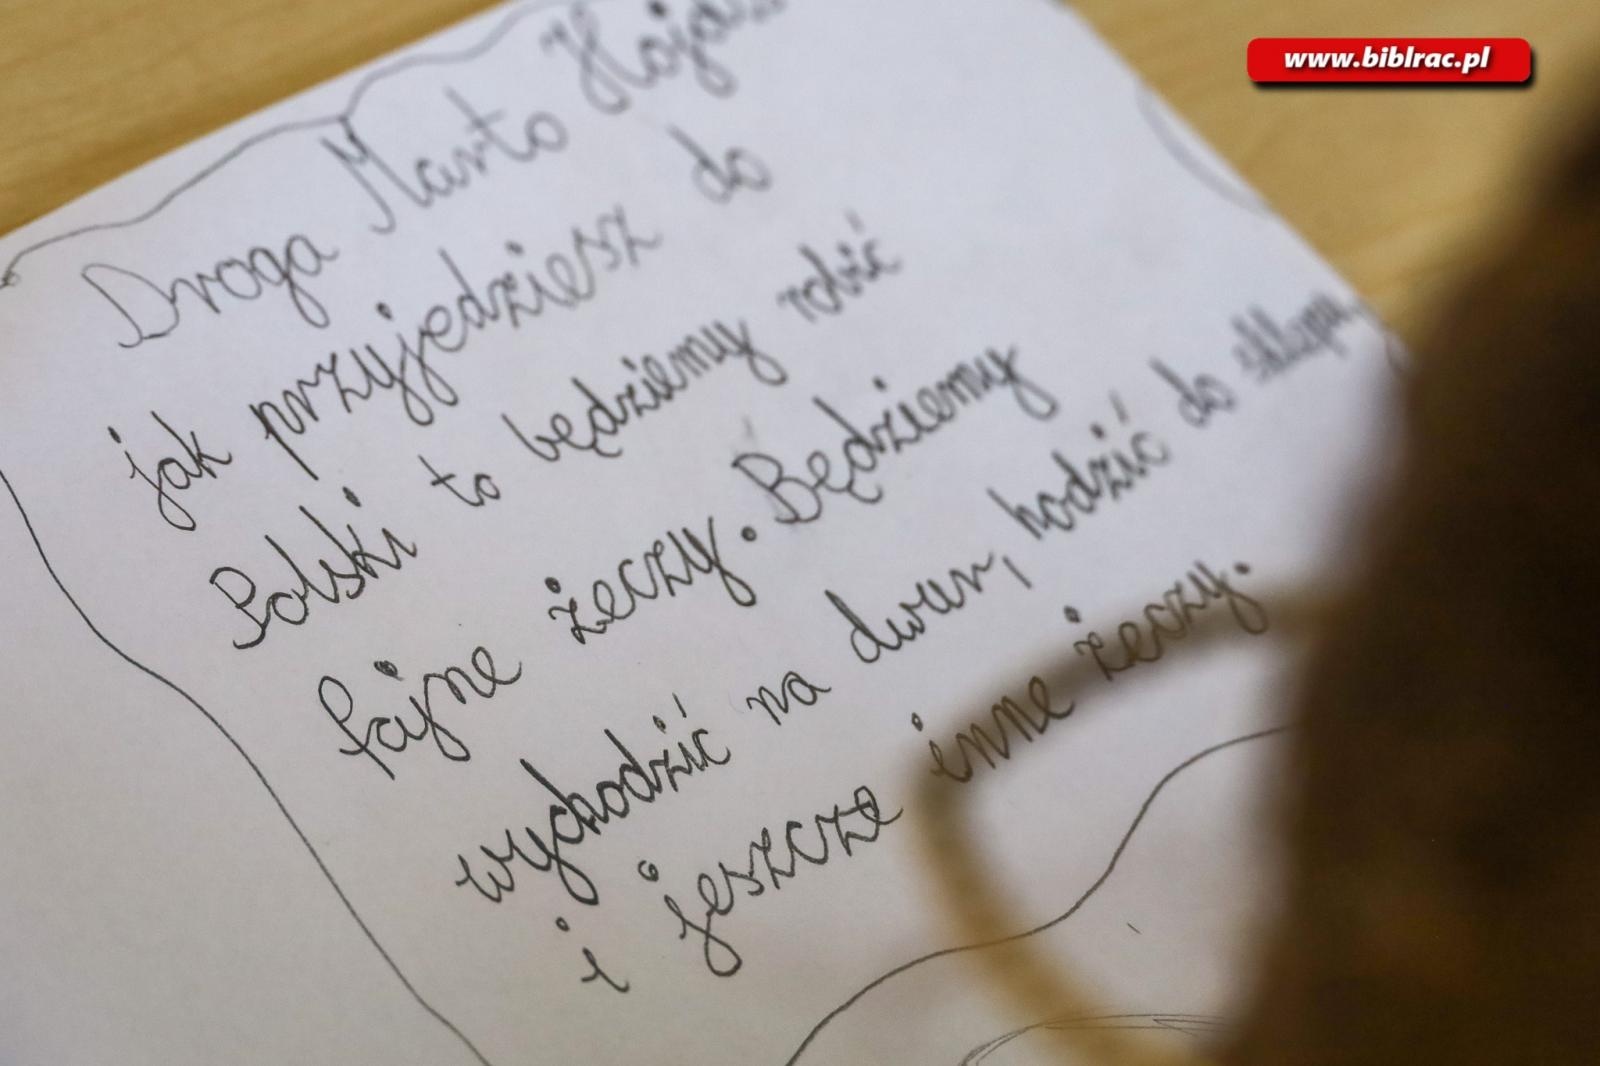 www.biblrac.pl
Droga Marto
jak przyjedziesz do
Polski to będziemy robić
fajne żeczy. Będziemy
wychodzić na dwur, hodzić do sklepu,
i jeszcze inne żeczy.